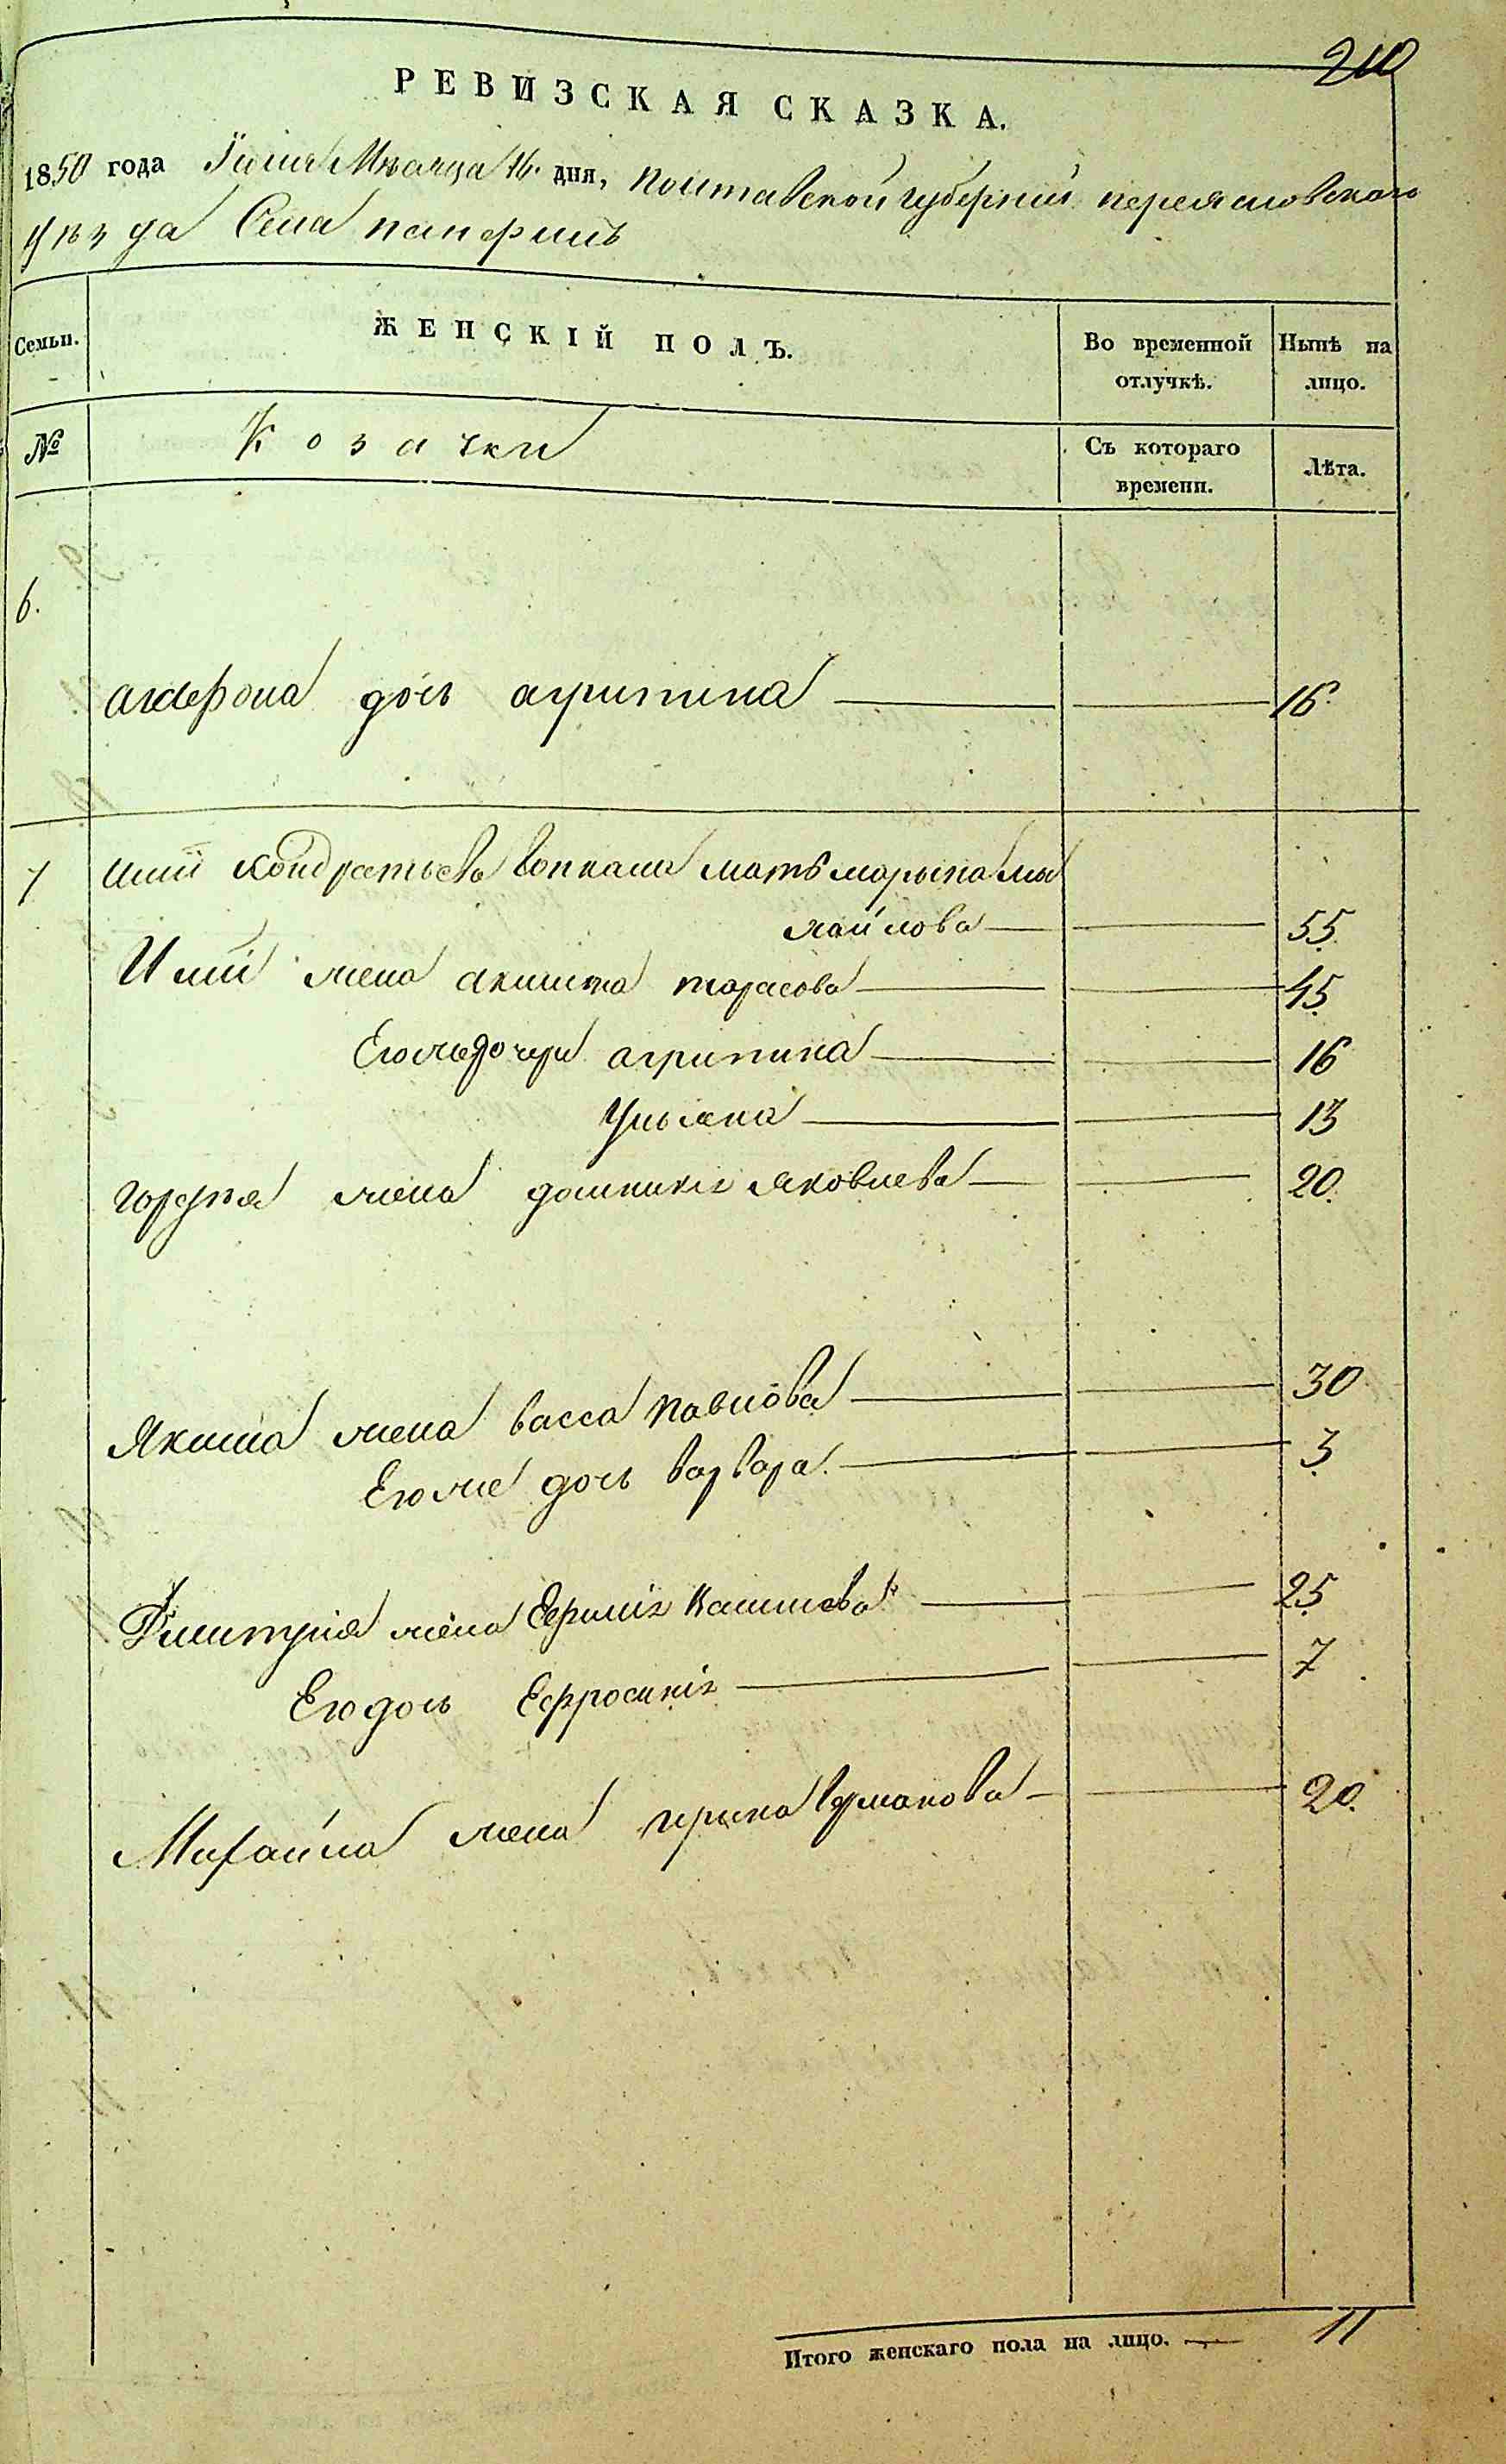 210
РЕВИЗСКАЯ СКАЗКА.
1850 года Іюля Мѣсяца 16. дня, полтавской губерніи переясловскаго
уѣзда Села панфилъ
Семьи. ЖЕНСКІЙ ПОЛЪ. Во временной отлучкѣ. Нынѣ на лицо.
№ Козачки Съ котораго времени. Лѣта.
6.
дочь агрипина 16.
7 иліи кондратьева мать марына ми
хайлова 55.
Иліи жена акилина тарасова 45
Егожъ дочери агрипина 16
Ульяна 13
гордѣя жена домникія яковлева 20.
Якима жена васса павлова 30
Егоже дочь варвара. 3
Димитрія жена 25
Его дочь Ефросинія 7
Михайла жена ирина 20.
Итого женскаго пола на лицо. 11